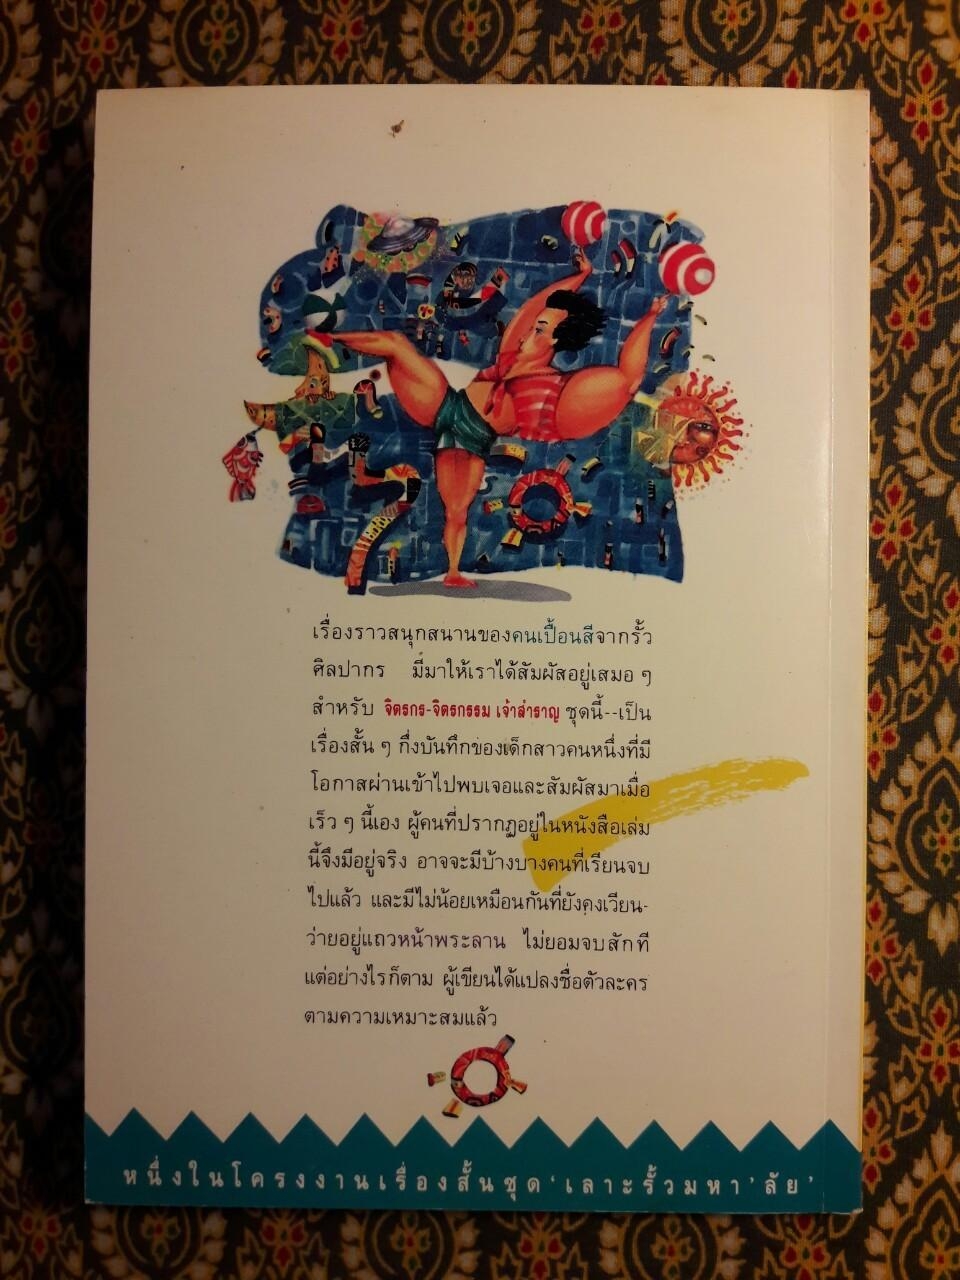 เรื่องราวสนุกสนานของคนเปื้อนสีจากรั้ว
ศิลปากร มีมาให้เราได้สัมผัสอยู่เสมอ ๆ
สำหรับ จิตรกร-จิตรกรรม เจ้าสำราญ ชุดนี้--เป็น
เรื่องสั้น ๆ กึ่งบันทึกของเด็กสาวคนหนึ่งที่มี
โอกาสผ่านเข้าไปพบเจอและสัมผัสมาเมื่อ
เร็ว ๆ นี้เอง ผู้คนที่ปรากฏอยู่ในหนังสือเล่ม
นี้จึงมีอยู่จริง อาจจะมีบ้างบางคนที่เรียนจบ
ไปแล้ว และมีไม่น้อยเหมือนกันที่ยังคงเวียน-
ว่ายอยู่แถวหน้าพระลาน ไม่ยอมจบสักที
แต่อย่างไรก็ตาม ผู้เขียนได้แปลงชื่อตัวละคร
ตามความเหมาะสมแล้ว
หนึ่งในโครงงานเรื่องสั้นชุด 'เลาะรั้วมหา'ลัย'